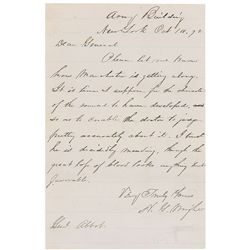 Army Building
New York Oct 14, 90
Dear General
Please let me know
how Manchester is getting along.
It is time I suppose for the results
of the wound to have developed, and
so as to enable the doctor to judge
pretty accurately about it. I trust
he is decidedly mending, though the
great loss of blood looks anything but
favorable.
Very Truly Yours
H. G. Wright
Genl Abbot.